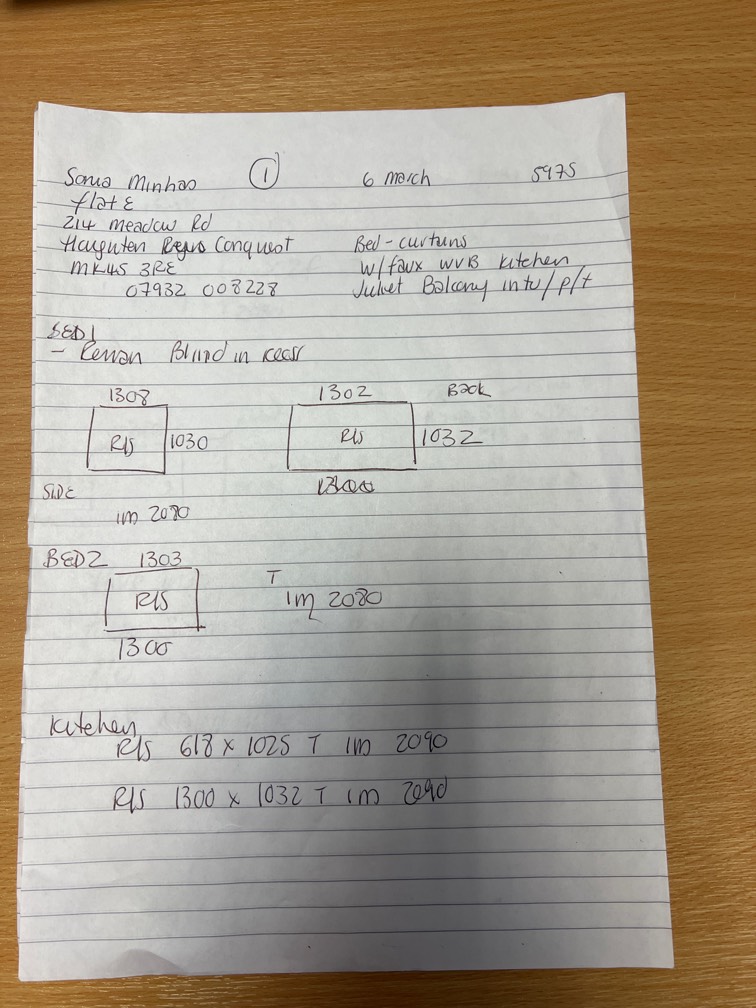 Sonia Minhas ① 6 march 5975
flat E
214 meadow Rd
Conquest Bed - curtuns
MK45 3RE W/faux WVB kitchen
07932 008228 Juliet Balcony intu/p/t
BED1
- Roman Blind in recess
1308 1302 Back
R/S 1030 R/S 1032
SIDE
1m 2080
BED2 1303
R/S T 1m 2080
1300
Kitchen
R/S 618 x 1025 T 1m 2090
R/S 1300 x 1032 T 1m 2090